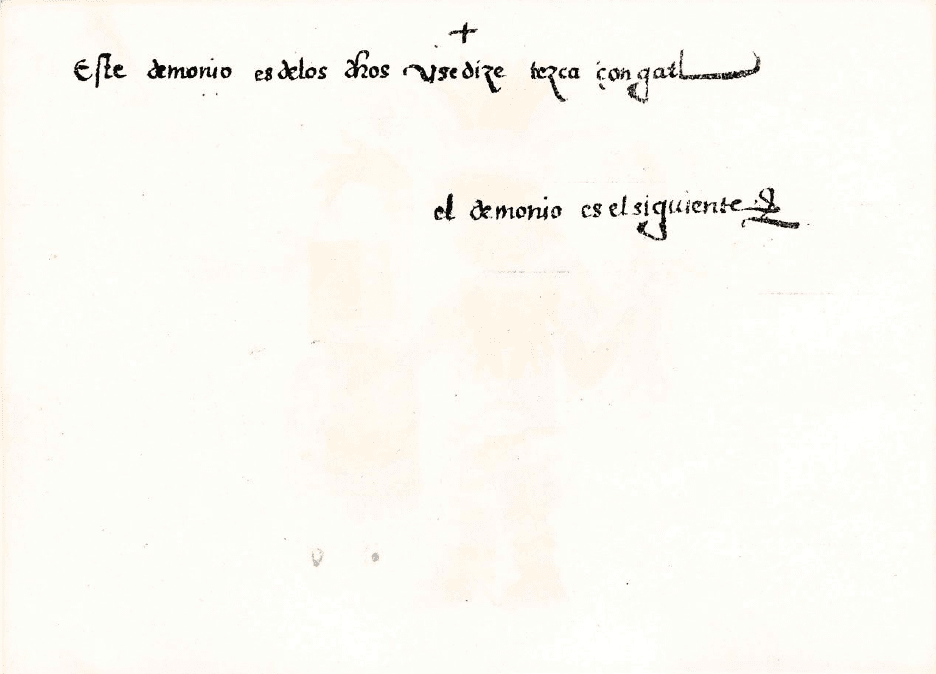 +
Este demonio es delos dhos y se dize tezca çongatl
el demonio es el siguiente